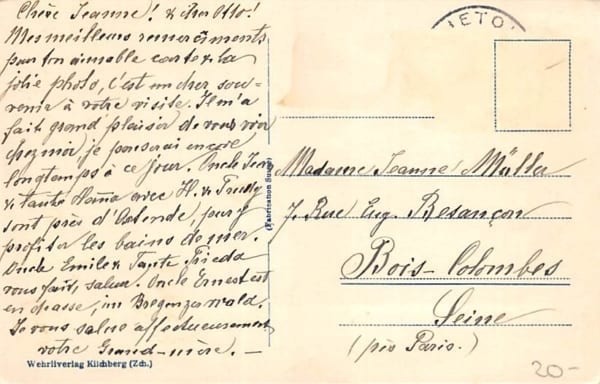 Chère Jeanne! & cher Otto!
Mes meilleurs remerciments
pour ton aimable carte & la
jolie photo, c'est un cher sou-
venir à votre visite. Il m'a
fait grand plaisir de vous voir
chez moi, je penserai encore
longtemps à ce jour. Oncle Jean
& tante Hanna avec H. & Truddy
sont près d'Ostende, pour y
profiter les bains de mer.
Oncle Emile & Tante Frieda
vous fait saluer. Oncle Ernest est
en chasse, im Bregenzerwald.
Je vous salue affectueusement
votre Grand-mère. —
Wehrliverlag Kilchberg (Zch.)
(Fabrication Suisse)
IETO
Madame Jeanne Müller
7. Rue Eug. Besançon
Bois-Colombes
Seine
(près Paris.)
20-